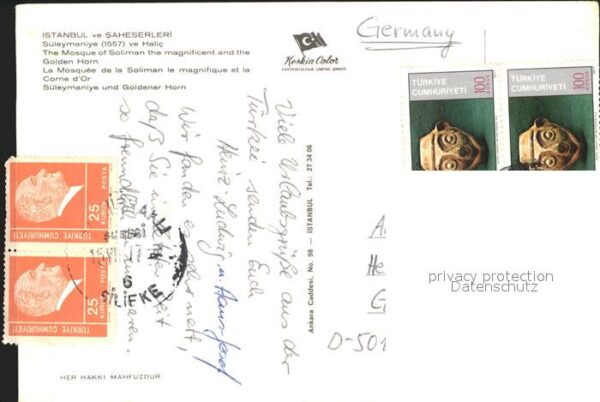 İSTANBUL ve ŞAHESERLERİ
Süleymaniye (1557) ve Haliç
The Mosque of Soliman the magnificent and the
Golden Horn
La Mosquée de la Soliman le magnifique et la
Corne d'Or
Süleymaniye und Goldener Horn
Keskin Color
KARTPOSTALCILIK LIMITED ŞİRKETİ
Germany
TÜRKİYE
CUMHURİYETİ
100
TÜRKİYE
CUMHURİYETİ
100
Viele Urlaubsgrüße aus der
Türkei senden Euch
Heinz-Ludwig u. Hans-Josef
Wir fanden es sehr nett,
daß Sie in
so freundlich waren.
Ankara Caddesi, No. 98 — İSTANBUL Tel.: 27 34 06
25
KURUŞ
POSTA
TÜRKİYE CUMHURİYETİ
25
KURUŞ
POSTA
TÜRKİYE CUMHURİYETİ
SİLİFKE
A
He
G
D-501
privacy protection
Datenschutz
HER HAKKI MAHFUZDUR